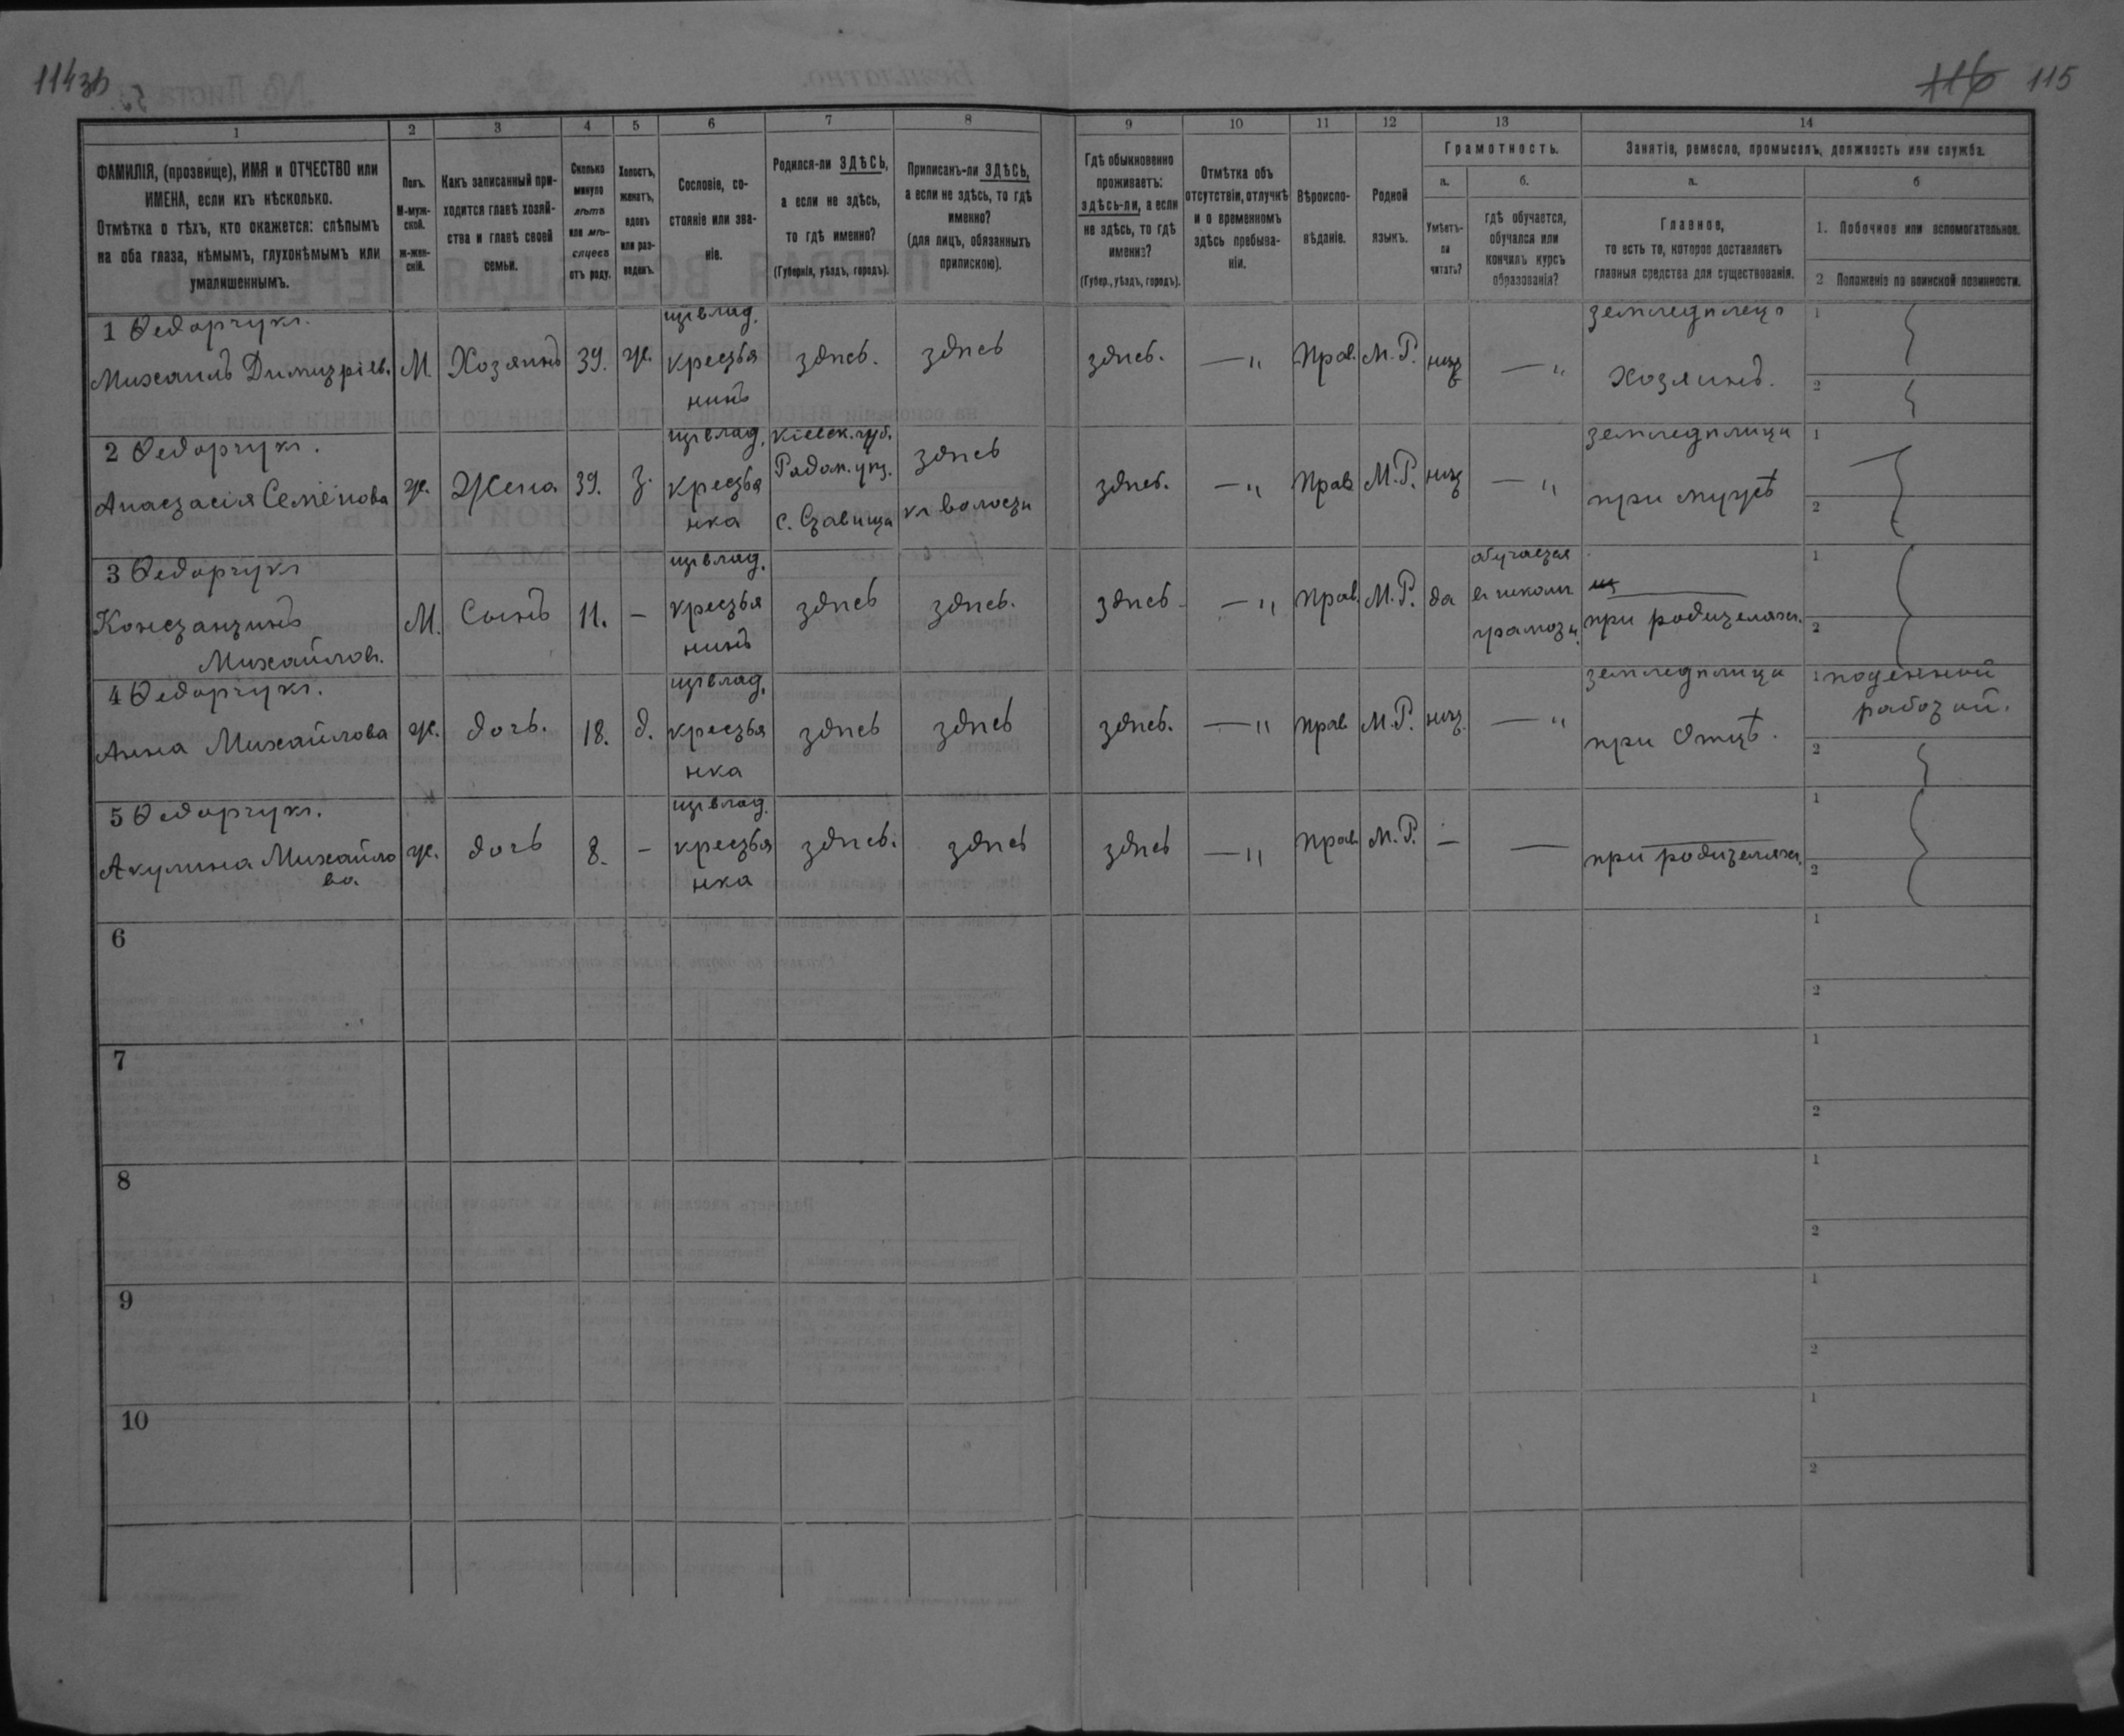 114зв
116 115
1 2 3 4 5 6 7 8 9 10 11 12 13 14
ФАМИЛІЯ, (прозвище), ИМЯ и ОТЧЕСТВО или
ИМЕНА, если ихъ нѣсколько.
Отмѣтка о тѣхъ, кто окажется: слѣпымъ
на оба глаза, нѣмымъ, глухонѣмымъ или
умалишеннымъ.
Полъ.
М-муж-
ской.
ж-жен-
скій.
Какъ записанный при-
ходится главѣ хозяй-
ства и главѣ своей
семьи.
Сколько
минуло
лѣтъ
или мѣ-
сяцевъ
отъ роду.
Холостъ,
женатъ,
вдовъ
или раз-
веденъ.
Сословіе, со-
стояніе или зва-
ніе.
Родился-ли ЗДѢСЬ,
а если не здѣсь,
то гдѣ именно?
(Губернія, уѣздъ, городъ).
Приписанъ-ли ЗДѢСЬ,
а если не здѣсь, то гдѣ
именно?
(для лицъ, обязанныхъ
припискою).
Гдѣ обыкновенно
проживаетъ:
здѣсь-ли, а если
не здѣсь, то гдѣ
именно?
(Губер., уѣздъ, городъ).
Отмѣтка объ
отсутствіи, отлучкѣ
и о временномъ
здѣсь пребыва-
ніи.
Вѣроиспо-
вѣданіе.
Родной
языкъ.
Грамотность.
а.
Умѣетъ-
ли
читать?
б.
гдѣ обучается,
обучался или
кончилъ курсъ
образованія?
Занятіе, ремесло, промыселъ, должность или служба.
а.
Главное,
то есть то, которое доставляетъ
главныя средства для существованія.
б
1. Побочное или вспомогательное.
2 Положеніе по воинской повинности.
1 Ѳедорчукъ.
Михаилъ Димитріев.
М.
Хозяинъ
39.
ж.
влад.
крестья
нинъ
здѣсь.
здѣсь
здѣсь.
— "
Прав.
М.Р.
нѣт
— "
земледѣлецъ
Хозяинъ.
1
2
2 Ѳедорчукъ.
Анастасія Семёнова
ж.
Жена
39.
З.
влад.
крестья
нка
Кіевск. губ.
Радом. уѣз.
с. Ставища
здѣсь
къ волости
здѣсь.
— "
Прав
М.Р.
нѣт
— "
земледѣлица
при мужѣ
1
2
3 Ѳедорчукъ
Константинъ
Михайлов.
М.
Сынъ
11.
—
влад.
крестья
нинъ
здѣсь
здѣсь.
здѣсь
— "
Прав.
М.Р.
да
обучается
въ школѣ
грамоты.
при родителяхъ.
1
2
4 Ѳедорчукъ.
Анна Михайлова
ж.
дочь.
18.
д.
влад.
крестья
нка
здѣсь
здѣсь
здѣсь.
— "
прав
М.Р.
нѣт.
— "
земледѣлица
при Отцѣ.
1 поденной
работой.
2
5 Ѳедорчукъ.
Акулина Михайло
ва.
ж.
дочь
8.
—
влад.
крестья
нка
здѣсь.
здѣсь
здѣсь
— "
Прав
М.Р.
—
—
при родителяхъ.
1
2
6
1
2
7
1
2
8
1
2
9
1
2
10
1
2